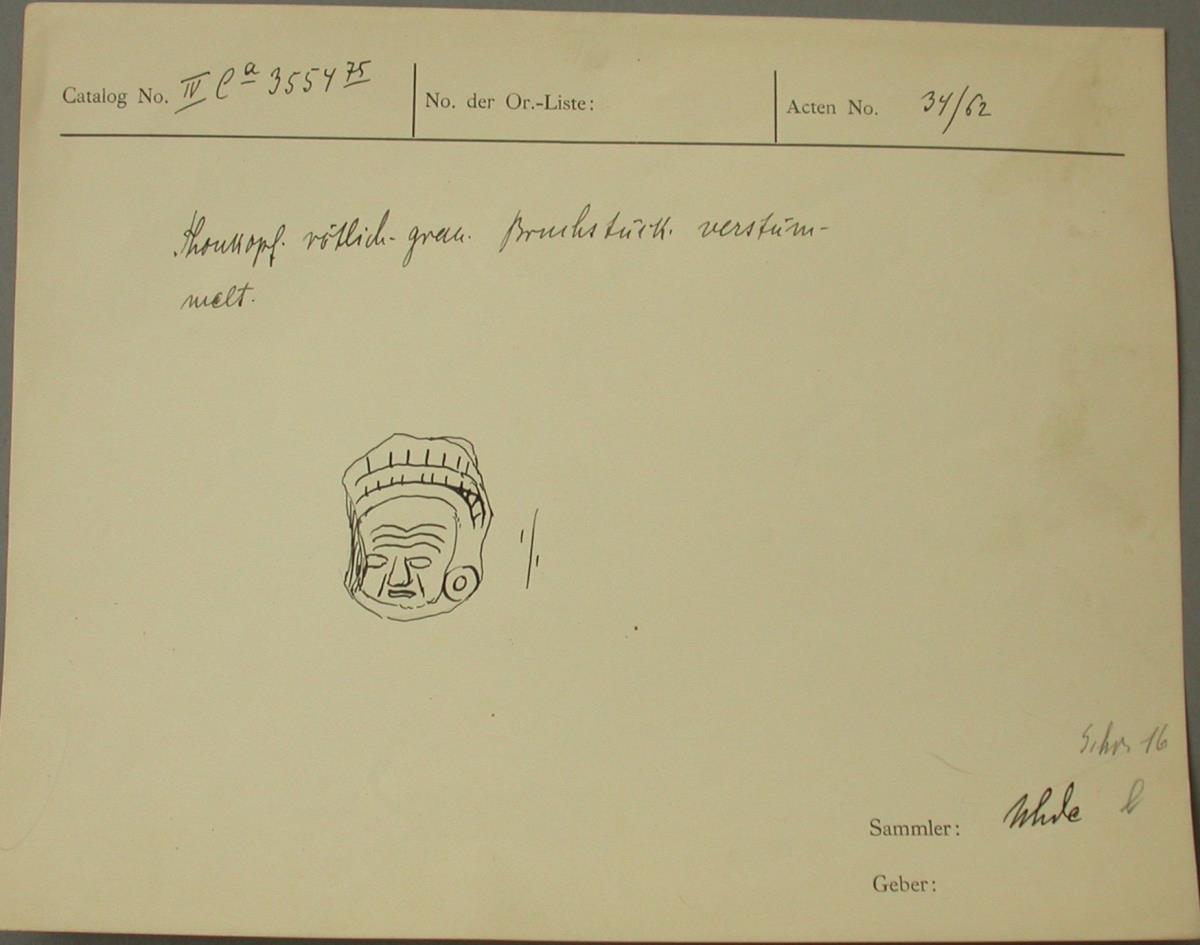 Catalog No. IV Ca 3554 75 No. der Or.-Liste: Acten No. 34/62
Thonkopf. rötlich-grau. Bruchstück. verstüm-
melt.
1/1
Schr. 16
Sammler: Uhde
Geber: